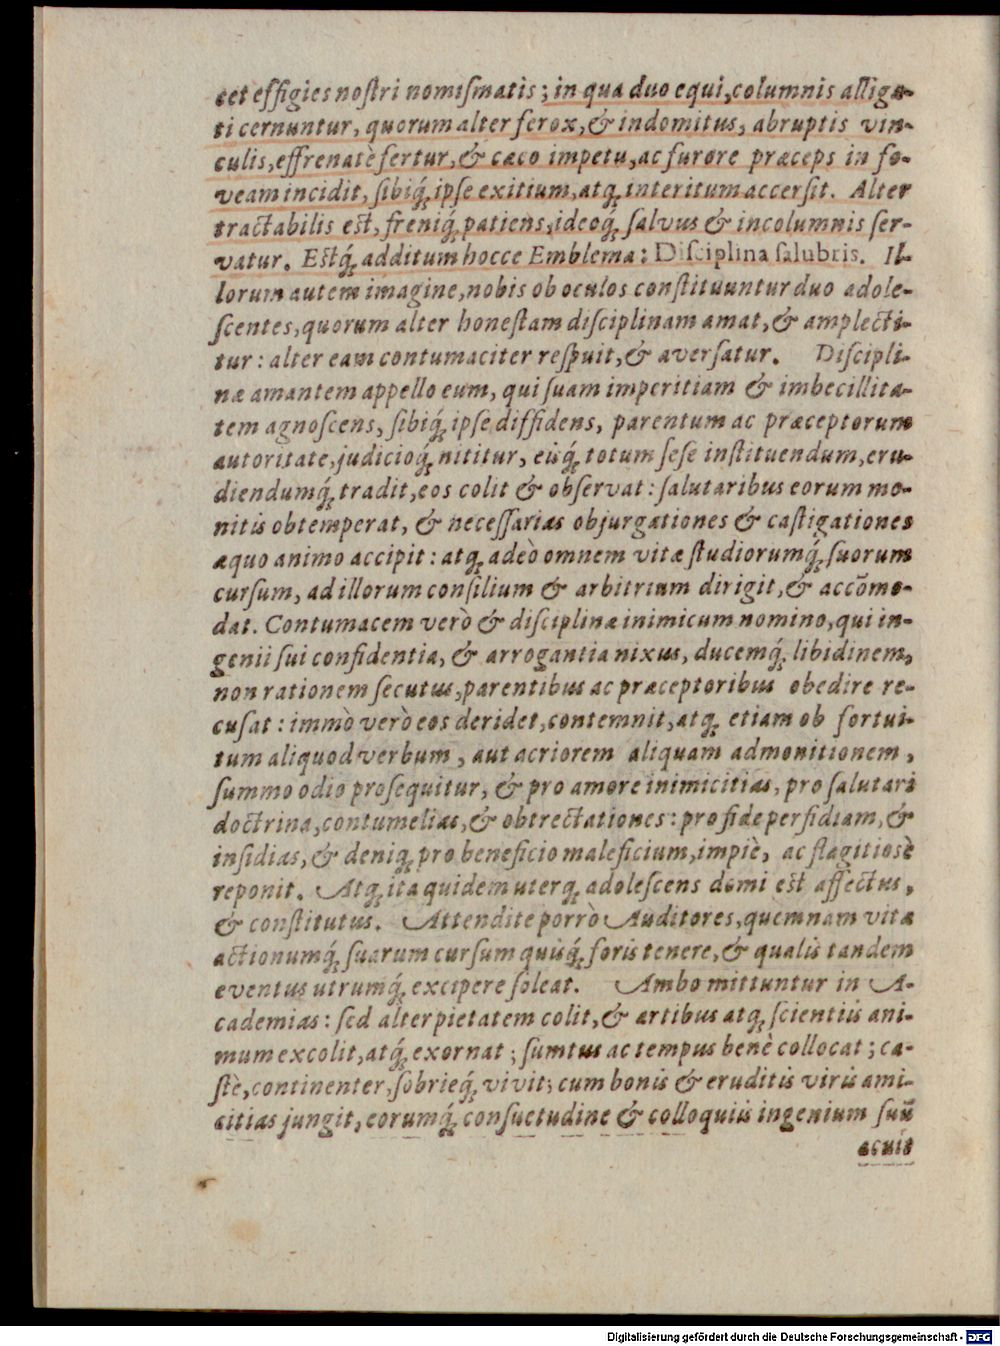 cet effigies noſtri nomiſmatis; in qua duo equi, columnis alliga-
ti cernuntur, quorum alter ferox, & indomitus, abruptis vin-
culis, effrenatè fertur, & cæco impetu, ac furore præceps in fo-
veam incidit, ſibiq́; ipſe exitium, atq; interitum accerſit. Alter
tractabilis eſt, freniq́; patiens, ideoq́; ſalvus & incolumnis ſer-
vatur. Eſtq́; additum hocce Emblema: Diſciplina ſalubris. Il-
lorum autem imagine, nobis ob oculos conſtituuntur duo adole-
ſcentes, quorum alter honeſtam diſciplinam amat, & amplecti-
tur: alter eam contumaciter reſpuit, & averſatur. Diſcipli-
næ amantem appello eum, qui ſuam imperitiam & imbecillita-
tem agnoſcens, ſibiq́; ipſe diffidens, parentum ac præceptorum
autoritate, judicioq́; nititur, eisq́; totum ſeſe inſtituendum, eru-
diendumq́; tradit, eos colit & obſervat: ſalutaribus eorum mo-
nitis obtemperat, & neceſſarias objurgationes & caſtigationes
æquo animo accipit: atq; adeò omnem vitæ ſtudiorumq́; ſuorum
curſum, ad illorum conſilium & arbitrium dirigit, & accõmo-
dat. Contumacem verò & diſciplinæ inimicum nomino, qui in-
genii ſui confidentia, & arrogantia nixus, ducemq́; libidinem,
non rationem ſecutus, parentibus ac præceptoribus obedire re-
cuſat: immò verò eos deridet, contemnit, atq; etiam ob fortui-
tum aliquod verbum, aut acriorem aliquam admonitionem,
ſummo odio proſequitur, & pro amore inimicitias, pro ſalutari
doctrina, contumelias, & obtrectationes: pro fide perfidiam, &
inſidias, & deniq; pro beneficio maleficium, impiè, ac flagitioſè
reponit. Atq; ita quidem uterq; adoleſcens domi eſt affectus,
& conſtitutus. Attendite porrò Auditores, quemnam vitæ
actionumq́; ſuarum curſum quisq́; foris tenere, & qualis tandem
eventus utrumq́; excipere ſoleat. Ambo mittuntur in A-
cademias: ſed alter pietatem colit, & artibus atq; ſcientiis ani-
mum excolit, atq́; exornat; ſumtus ac tempus benè collocat; ca-
ſtè, continenter, ſobrieq́; vivit; cum bonis & eruditis viris ami-
citias jungit, eorumq́; conſuetudine & colloquiis ingenium ſuũ
acuit
Digitalisierung gefördert durch die Deutsche Forschungsgemeinschaft - DFG